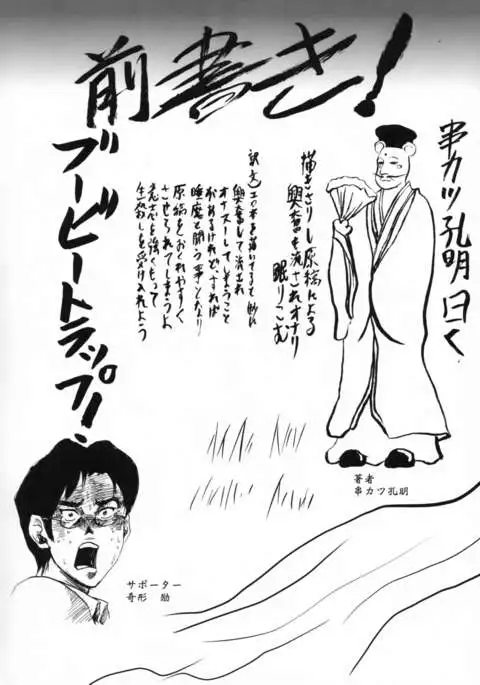 前書き!
串カツ孔明 曰く
描きさりし原稿による
興奮も流されオナり
眠りこむ
訳文 エロ本を描いてると 妙に
興奮して流され
オナヌーしてしまうこと
があるけれど、すれば
睡魔と闘う事となり
原稿をおれやすく
させられてしまうよ
を強くもって
生殺しを受け入れよう
ブービートラップ!
著者
串カツ孔明
サポーター
奇形 励